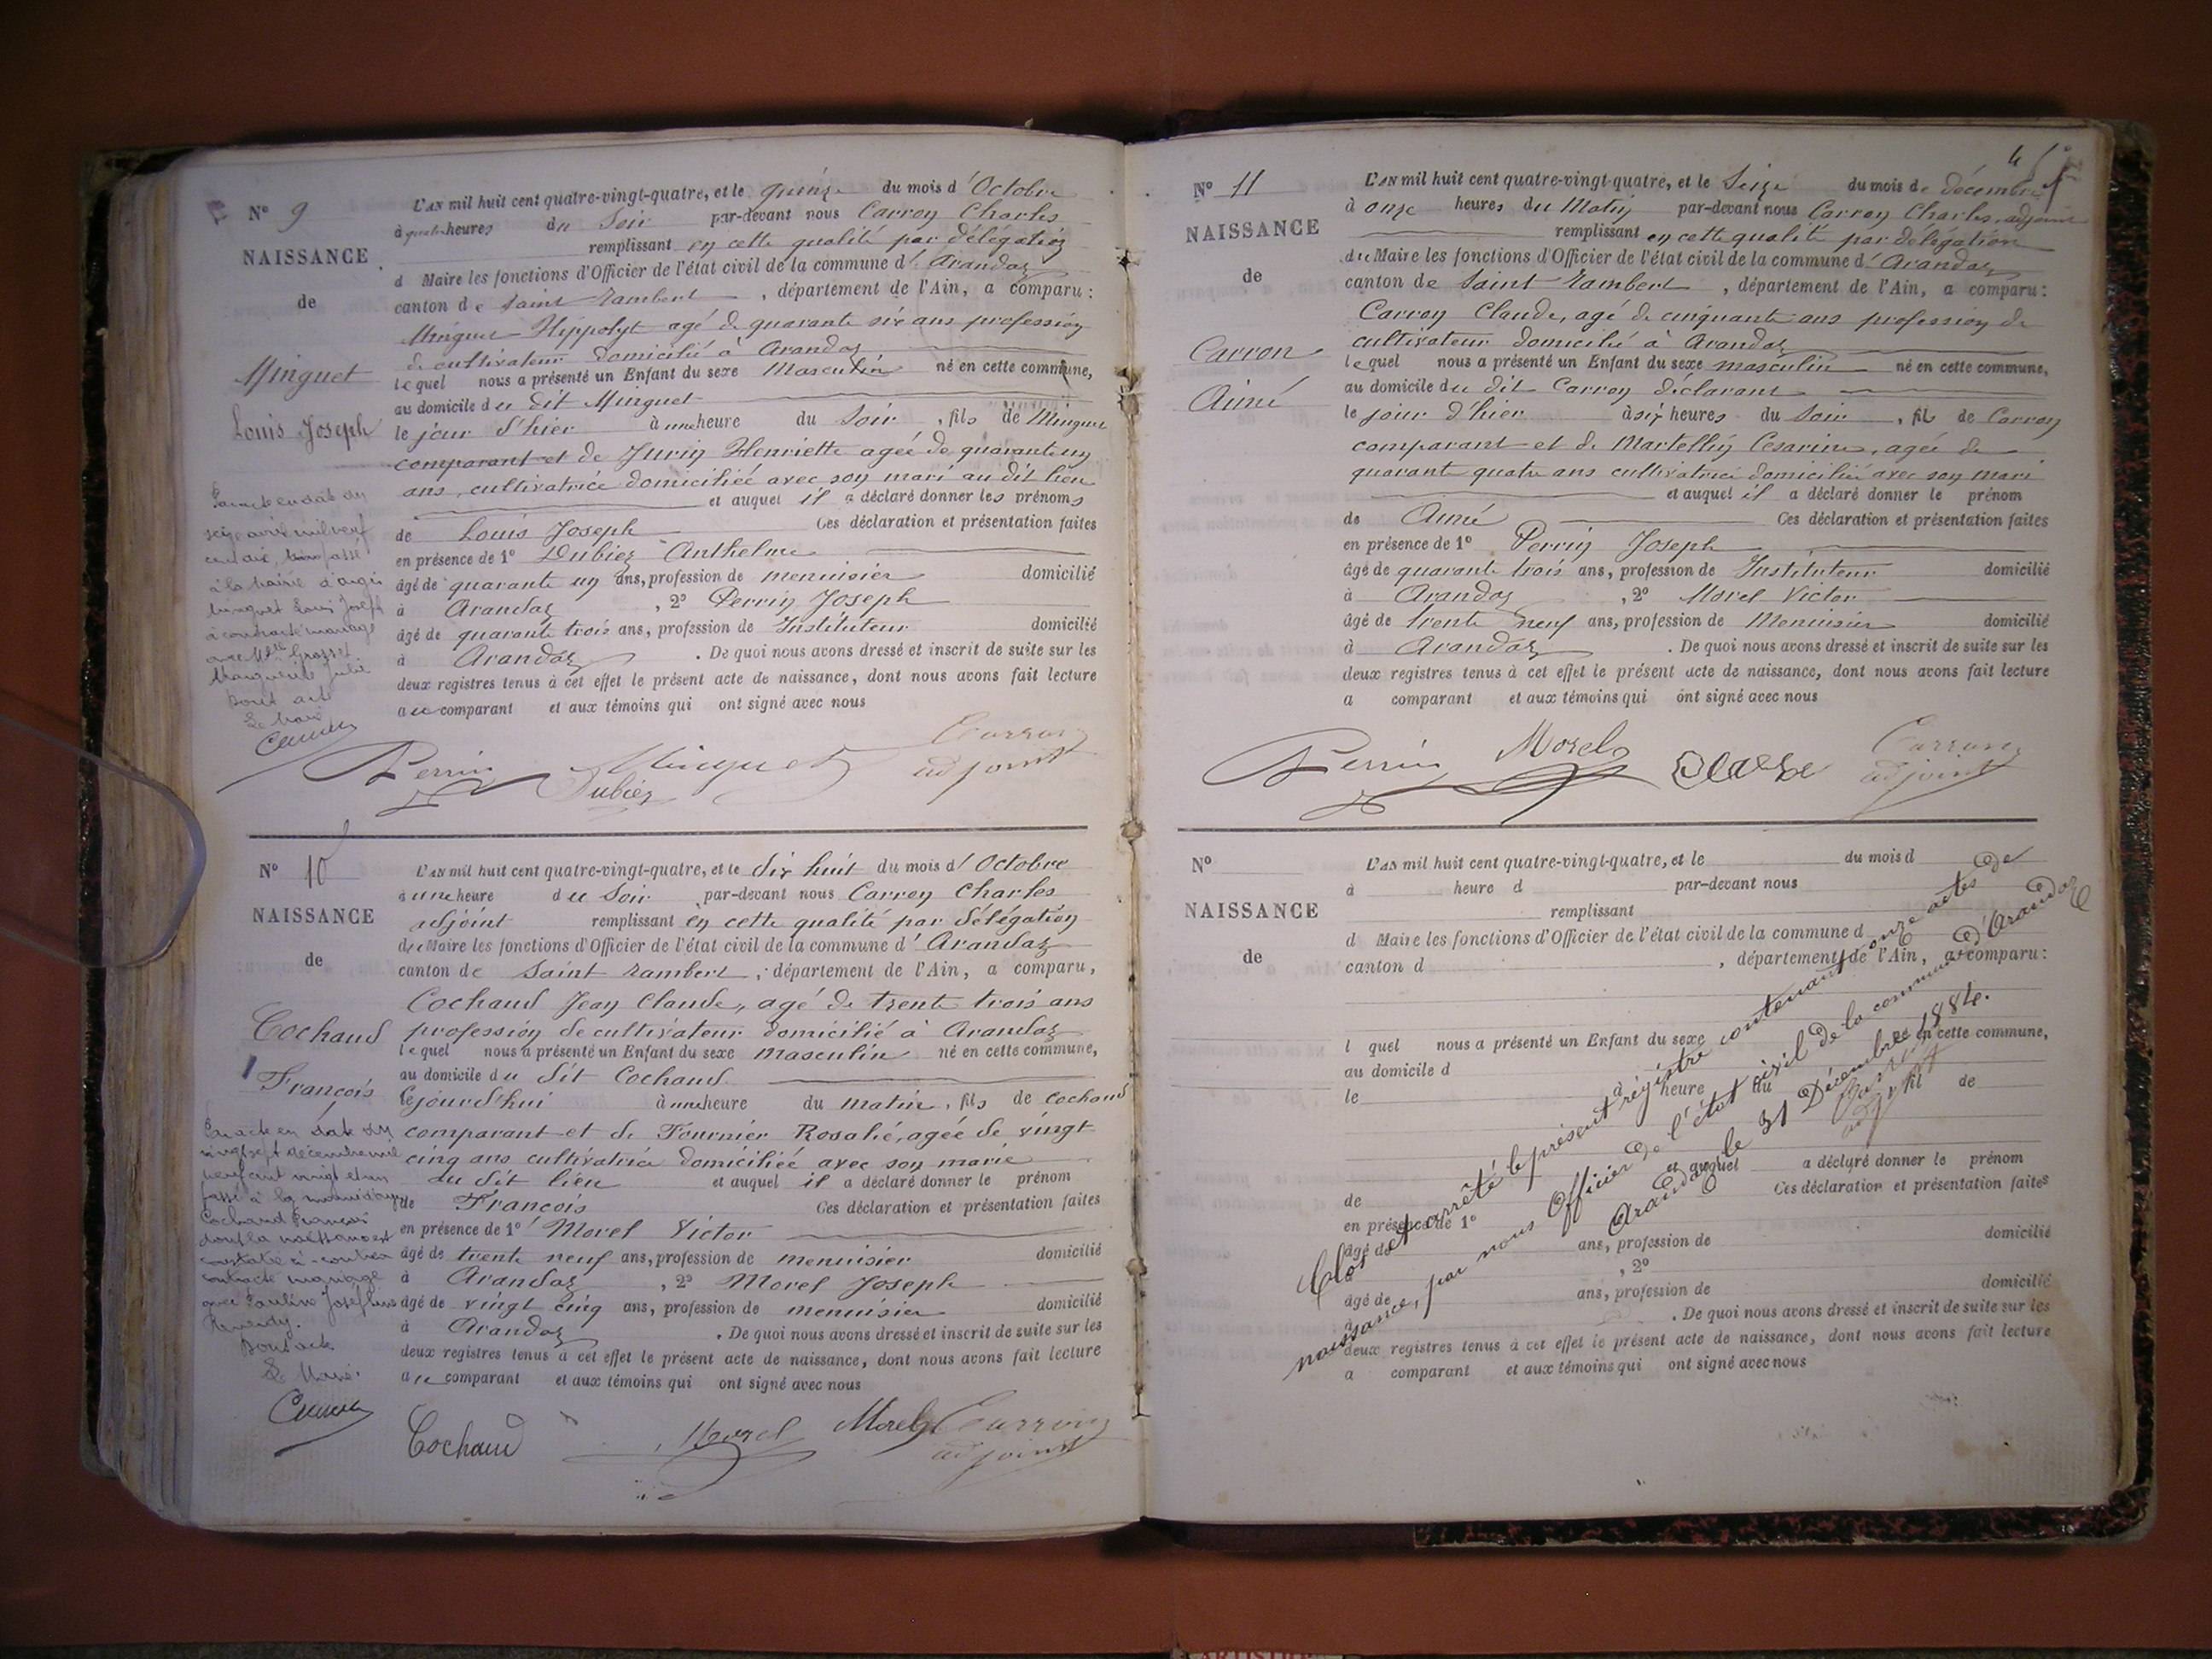 N° 9
NAISSANCE
de
Minguet
Louis Joseph
L'AN mil huit cent quatre-vingt-quatre, et le quinze du mois d'Octobre
à quatre heures du Soir par-devant nous Carron Charles
remplissant en cette qualité par délégation
d Maire les fonctions d'Officier de l'état civil de la commune d'Arandas
canton de Saint Rambert, département de l'Ain, a comparu :
Minguet Hippolyt agé de quarante six ans profession
de cultivateur domicilié à Arandas
lequel nous a présenté un Enfant du sexe Masculin né en cette commune,
au domicile du dit Minguet
le jour d'hier à une heure du Soir, fils de Minguet
comparant et de Jurin Henriette agée de quarante un
ans, cultivatrice domiciliée avec son mari au dit lieu
et auquel il a déclaré donner les prénoms
de Louis Joseph Ces déclaration et présentation faites
en présence de 1° Dubiez Anthelme
âgé de quarante un ans, profession de menuisier domicilié
à Arandas, 2° Perrin Joseph
âgé de quarante trois ans, profession de Instituteur domicilié
à Arandas. De quoi nous avons dressé et inscrit de suite sur les
deux registres tenus à cet effet le présent acte de naissance, dont nous avons fait lecture
au comparant et aux témoins qui ont signé avec nous
Par acte en date du
seize avril mil neuf
cent dix, passé
à la Mairie d'
Minguet Louis Joseph
à contracté mariage
avec Mlle Grosset
Marguerite Julie
Dont acte
Le Maire
Perrin Minguet Carron
Dubiez adjoint
N° 10
NAISSANCE
de
Cochaud
François
L'AN mil huit cent quatre-vingt-quatre, et le dix huit du mois d'Octobre
à une heure du Soir par-devant nous Carron Charles
adjoint remplissant en cette qualité par délégation
du Maire les fonctions d'Officier de l'état civil de la commune d'Arandas
canton de Saint Rambert, département de l'Ain, a comparu,
Cochaud Jean Claude, agé de trente trois ans
profession de cultivateur domicilié à Arandas
lequel nous a présenté un Enfant du sexe Masculin né en cette commune,
au domicile du dit Cochaud
cejourd'hui à une heure du matin, fils de Cochaud
comparant et de Fournier Rosalie, agée de vingt
cinq ans cultivatrice domiciliée avec son marie
au dit lieu et auquel il a déclaré donner le prénom
de François Ces déclaration et présentation faites
en présence de 1° Morel Victor
âgé de trente neuf ans, profession de menuisier domicilié
à Arandas, 2° Morel Joseph
âgé de vingt cinq ans, profession de menuisier domicilié
à Arandas. De quoi nous avons dressé et inscrit de suite sur les
deux registres tenus à cet effet le présent acte de naissance, dont nous avons fait lecture
au comparant et aux témoins qui ont signé avec nous
Par acte en date du
vingt sept décembre mil
neuf cent vingt et un
passé à la mairie
Cochaud François
dont la naissance est
constatée ci-contre a
contracté mariage
avec Pauline Joséphine
Dont acte
Le Maire
Cochaud Morel Morel Carron
adjoint
N° 11
NAISSANCE
de
Carron
Aimé
L'AN mil huit cent quatre-vingt-quatre, et le Seize du mois de décembre
à onze heures du Matin par-devant nous Carron Charles, adjoint
remplissant en cette qualité par délégation
du Maire les fonctions d'Officier de l'état civil de la commune d'Arandas
canton de Saint Rambert, département de l'Ain, a comparu :
Carron Claude, agé de cinquante ans profession de
cultivateur domicilié à Arandas
lequel nous a présenté un Enfant du sexe masculin né en cette commune,
au domicile du dit Carron déclarant
le jour d'hier à six heures du Soir, fils de Carron
comparant et de Martellin Cesarine, agée de
quarant quatre ans cultivatrice domiciliée avec son mari
et auquel il a déclaré donner le prénom
de Aimé Ces déclaration et présentation faites
en présence de 1° Perrin Joseph
âgé de quarante trois ans, profession de Instituteur domicilié
à Arandas, 2° Morel Victor
âgé de trente neuf ans, profession de Menuisier domicilié
à Arandas. De quoi nous avons dressé et inscrit de suite sur les
deux registres tenus à cet effet le présent acte de naissance, dont nous avons fait lecture
a comparant et aux témoins qui ont signé avec nous
Perrin Morel Carron
adjoint
N°
NAISSANCE
de
L'AN mil huit cent quatre-vingt-quatre, et le du mois d
à heure d par-devant nous
remplissant
d Maire les fonctions d'Officier de l'état civil de la commune d
canton d , département de l'Ain, a comparu :
l quel nous a présenté un Enfant du sexe né en cette commune,
au domicile d
le à heure du , fil de
et auquel a déclaré donner le prénom
de Ces déclaration et présentation faites
en présence de 1°
âgé de ans, profession de domicilié
à , 2°
âgé de ans, profession de domicilié
à . De quoi nous avons dressé et inscrit de suite sur les
deux registres tenus à cet effet le présent acte de naissance, dont nous avons fait lecture
a comparant et aux témoins qui ont signé avec nous
Clos et arrêté le présent régistre contenant onze actes de
naissance, par nous Officier de l'état civil de la commune d'Arandas
Arandas le 31 Décembre 1884.
Carron
adjoint